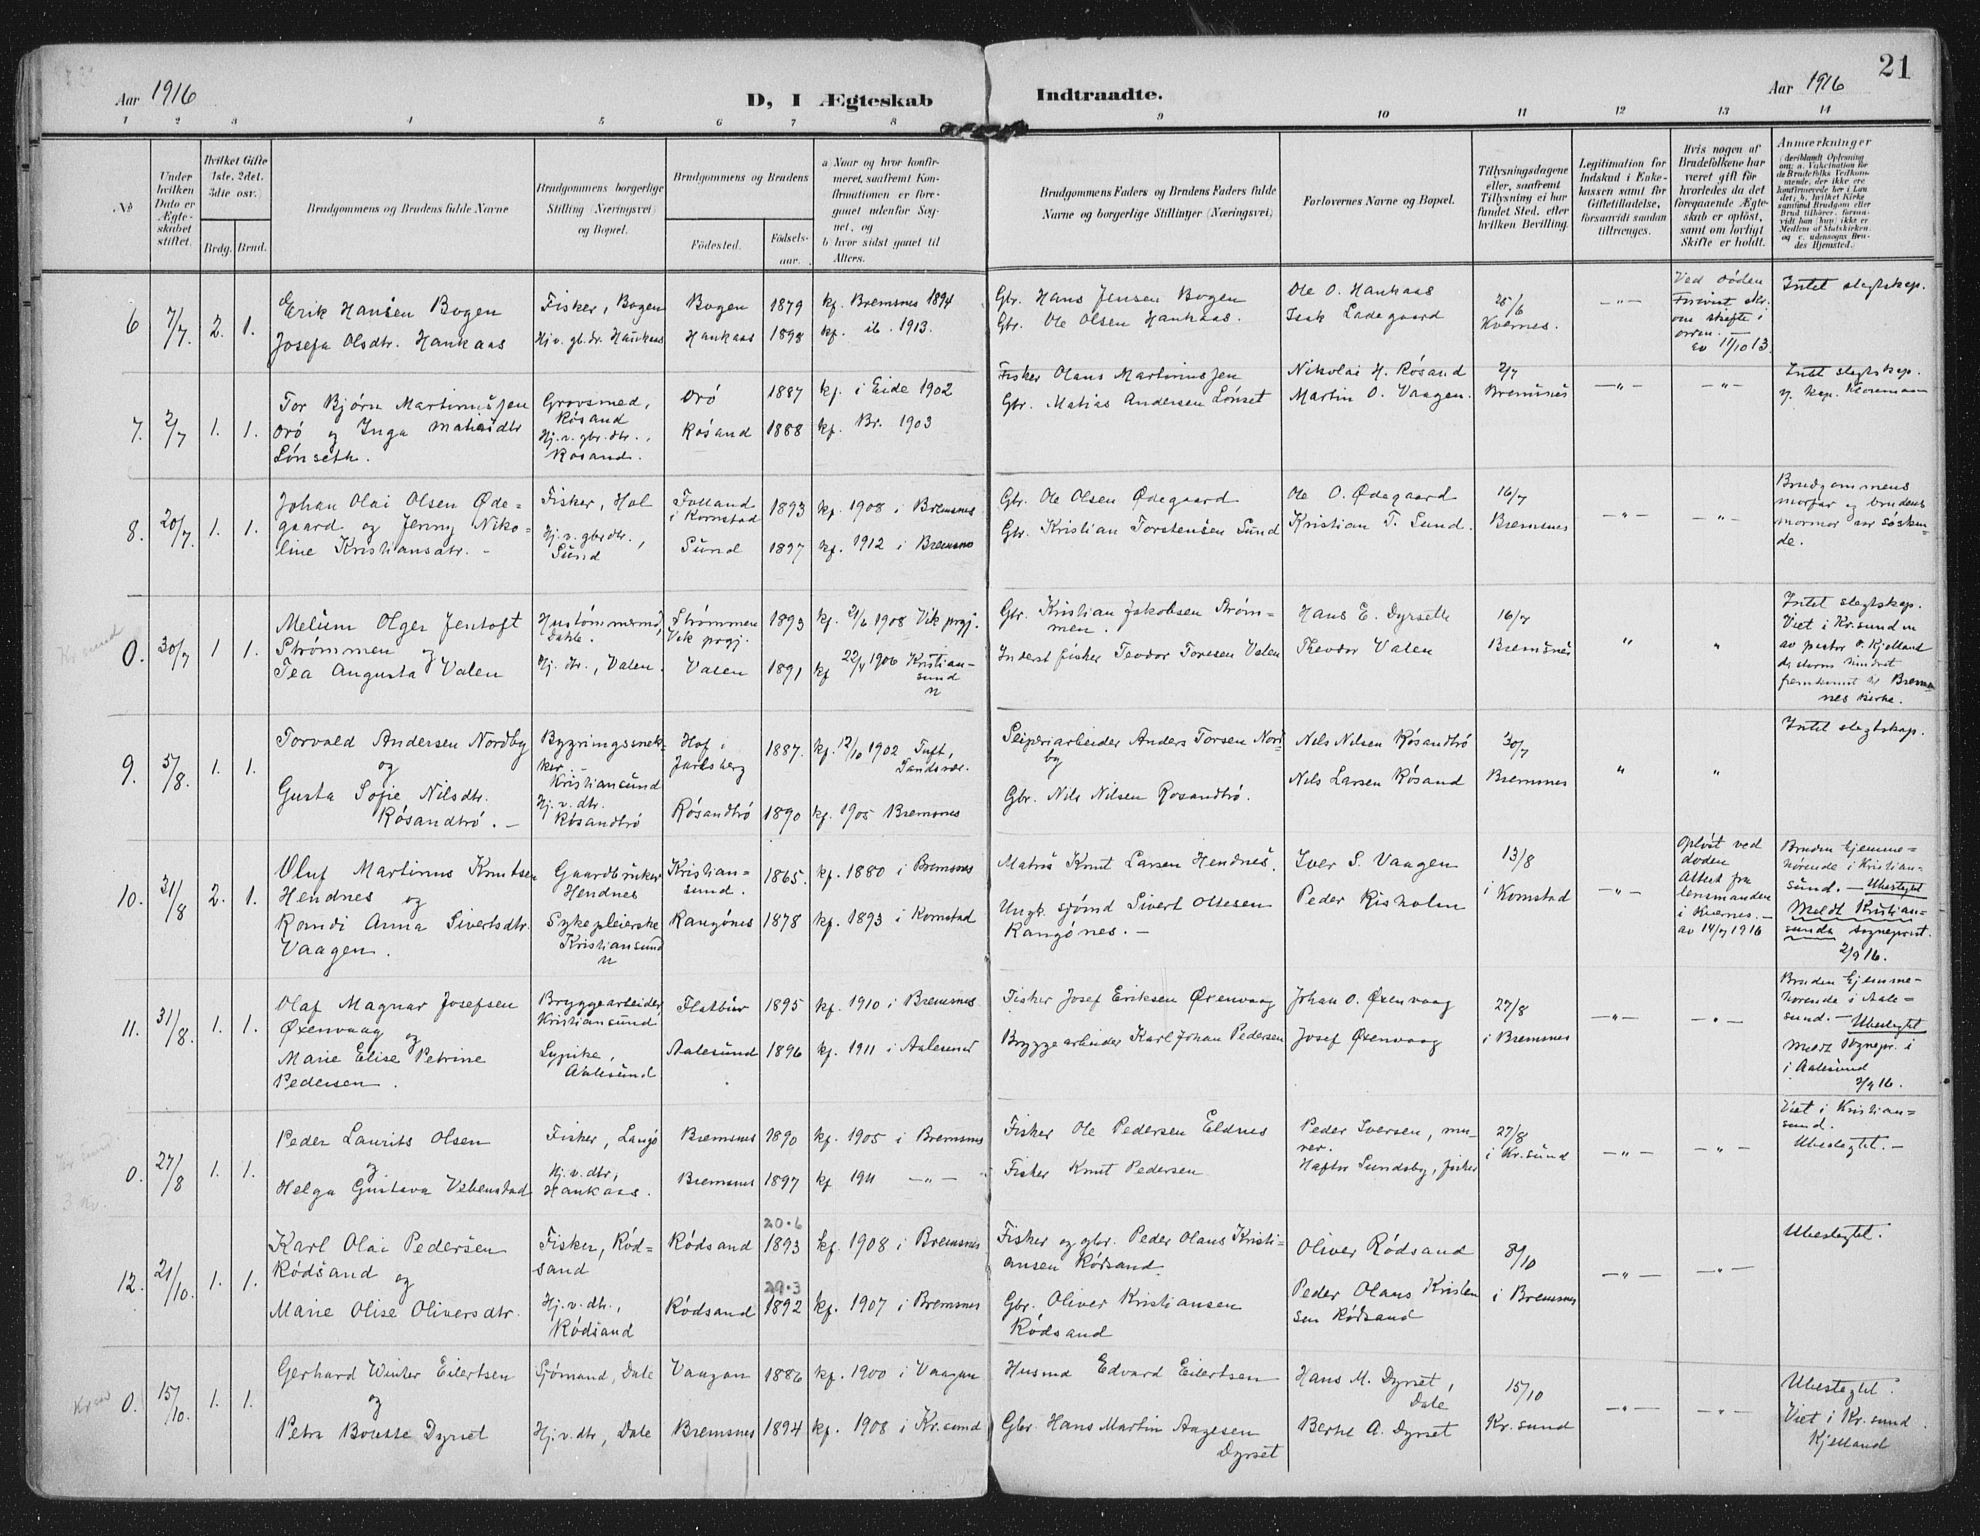 21
Aar 1916
D, I Ægteskab Indtraadte.
Aar 1916
1 2 3 4 5 6 7 8 9 10 11 12 13 14
№
Under hvilken Dato er Ægteskabet stiftet.
Hvilket Gifte 1ste, 2det, 3die osv.
Brdg. Brud.
Brudgommens og Brudens fulde Navne
Brudgommens borgerlige Stilling (Næringsvei) og Bopæl.
Brudgommens og Brudens
Fødested.
Fødselsaar.
a Naar og hvor konfirmeret, saafremt Konfirmationen er foregaaet udenfor Sognet, og
b hvor sidst gaaet til Alters.
Brudgommens Faders og Brudens Faders fulde Navne og borgerlige Stillinger (Næringsvei)
Forlovernes Navne og Bopæl.
Tillysningsdagene eller, saafremt Tillysning ei har fundet Sted, efter hvilken Bevilling.
Legitimation for Indskud i Enkekassen samt for Giftetilladelse, forsaavidt saadan tiltrænges.
Hvis nogen af Brudefolkene har været gift før hvorledes da det foregaaende Ægteskab er opløst, samt om lovligt Skifte er holdt.
Anmærkninger
6 7/7. 2. 1.
Erik Hansen Bogen
Josefa Olsdtr. Hankaas
Fisker, Bogen
Hj. v. gb. dr. Hankaas
Bogen 1879 kf. Bremsnes 1894
Hankaas 1893 kf. ib. 1913.
Gbr. Hans Jensen Bogen
Gbr. Ole Olsen Hankaas.
Ole O. Hankaas
Isak Ladegaard
25/6
Kvernes.
—"—
Ved døden
om skifte i
orden. —
av 11/10 13.
Intet slegtskap.
7. 2/7 1. 1.
Tor Bjørn Martinussen
Orö og Inga Mathisdtr
Lønseth.
Gravsmed,
Røsand
Hj. v. gbr. dtr.,
Rosand.
Orö 1887 kf. i Eide 1902
Rosand 1888 kf. Br. 1903
Fisker Olaus Martinussen
Gbr. Matias Andersen Lønset
Nikolai H. Røsand
Martin O. Vaagen.
2/7
Bremsnes
—"— —"—
Intet slegtskap.
8. 20/7. 1. 1.
Johan Olai Olsen Øde-
gaard og Jenny Niko-
line Kristiansdtr. —
Fisker, Hol
Hj. v. gbr dtr.,
Sund
Folland
i Kornstad 1893 kf. 1908 i Bremsnes
Sund 1897 kf. 1912 i Bremsnes
Gbr. Ole Olsen Ødegaard
Gbr. Kristian Torstensen Sund
Ole O. Ødegaard
Kristian T. Sund.
16/7
Bremsnes
—"— —"—
Brudgommens
morfar og brudens
mormor var søsken-
de.
Kr sund
0. 30/7 1 1.
Melum Olger Jentoft
Strømmen og
Tea Augusta Valen
Dahle.
Hj. dtr., Valen.
Strømmen
Vik prgj. 1893 kf. 21/6 1908 Vik prgj.
Valen 1891 kf 22/4 1906 Kristian-
sund
N
Gbr. Kristian Jakobsen Strøm-
men.
Inderst fisker Teodor Toresen Valen
Hans E. Dyrseth
Theodor Valen
16/7
Bremsnes
" "
Intet slegtskap.
Viet i Kr. sund N
av pastor O. Kjelland
da storm hindret
fremkomst til Brems-
nes kirke.
9. 5/8. 1. 1.
Torvald Andersen Nordby
og
Gusta Sofie Nilsdtr.
Røsandtrö. —
Bygningssnek-
ker.
Kristiansund
Hj. v. dtr.
Røsandtrö
Hof,
Jarlsberg 1887. kf. 12/10 1902 Tuft,
Sandsvær.
Røsandtrö 1890 kf. 1905 Bremsnes
Anders Torsen Nord-
by
Gbr. Nils Nilsen Rosandtrö.
Nils Nilsen Røsandtrö
Nils Larsen Røsand
30/7
Bremsnes
" "
Intet slegtskap.
10. 31/8 2. 1.
Oluf Martinus Knutsen
Hendnes og
Randi Anna Sivertsdtr.
Vaagen.
Gaardbruker
Hendnes
Sykepleierske
Kristiansund
N
Kristian-
sund. 1865. kf. 1880 i Bremsnes
Rangönes 1878 kf. 1893 i Kornstad
Matros Knut Larsen Hendnes.
Ungk. sjømd Sivert Ottesen
Rangönes. —
Iver S. Vaagen
Peder Risholm
13/8
i Kornstad
—"—
Opløst ved
døden
Attest fra
lensmanden
i Kvernes. —
av 14/7 1916
Bruden hjemme-
hørende i Kristian-
sund. — Ubeslegtet
Meldt Kristian-
sunds sogneprest.
2/9 16.
11. 31/8. 1. 1.
Olaf Magnar Josefsen
Øxenvaag og
Marie Elise Petrine
Pedersen.
Bryggearbeider,
Kristiansund
Sypike,
Aalesund
Flatbur 1895 kf. 1910 i Bremsnes
Aalesund 1896 kf. 1911 i Aalesund
Fisker Josef Eriksen Øxenvaag
Bryggearbeider Karl Johan Pedersen
Johan O. Øxenvaag
Josef Øxenvaag
27/8
i Bremsnes
—"— —"—
Bruden hjemme-
hørende i Aale-
sund. — Ubeslegtet
Meldt Sognepr. i
i Aalesund
2/9 16.
Kr. sund
0. 27/8 1. 1.
Peder Laurits Olsen
og
Helga Gustava Vebenstad
Fisker, Langö
Hj. v. dtr,
Hankaas.
Bremsnes 1890 kf. 1905 i Bremsnes
Bremsnes 1897 kf 1911 —"—
Fisker Ole Pedersen Eldnes
Fisker Knut Pedersen
Peder Iversen, mu-
rer.
Haftor Sundsby, fisker
27/8
i Kr. sund
—"— —"—
Viet i Kristian-
sund.
Ubeslegtet. —
12. 21/10. 1. 1.
Karl Olai Pedersen
Rødsand og
Marie Olise Oliversdtr.
Fisker, Rød-
sand
Hj. v. dtr.,
Rødsand
20.6
Rødsand 1893 kf. 1908 i Bremsnes
29.3
Rødsand 1892 kf. 1907 i Bremsnes
Fisker og gbr. Peder Olaus Kristi-
ansen Rødsand.
Gbr. Oliver Kristiansen
Rødsand
Oliver Rødsand
Peder Olaus Kristen
sen Rødsand
8/10
i Bremsnes
—"— —"—
Ubeslegtet.
0. 15/10. 1. 1.
Gerhard Winter Eilertsen
og
Petra Dyrset
Sjömand, Dale
Hj. v. dtr, Dale
Vaagan 1886 kf. 1900 i Vaagan
Bremsnes 1894 kf. 1908 i Kr. sund
Husmd Edvard Eilertsen
Gbr. Hans Martin Aagesen
Dyrset
Hans M. Dyrset,
Dale
Bertel A. Dyrset
15/10
Kr. sund
—"— —"—
Ubeslegtet.
Viet i Kr. sund
Kjelland